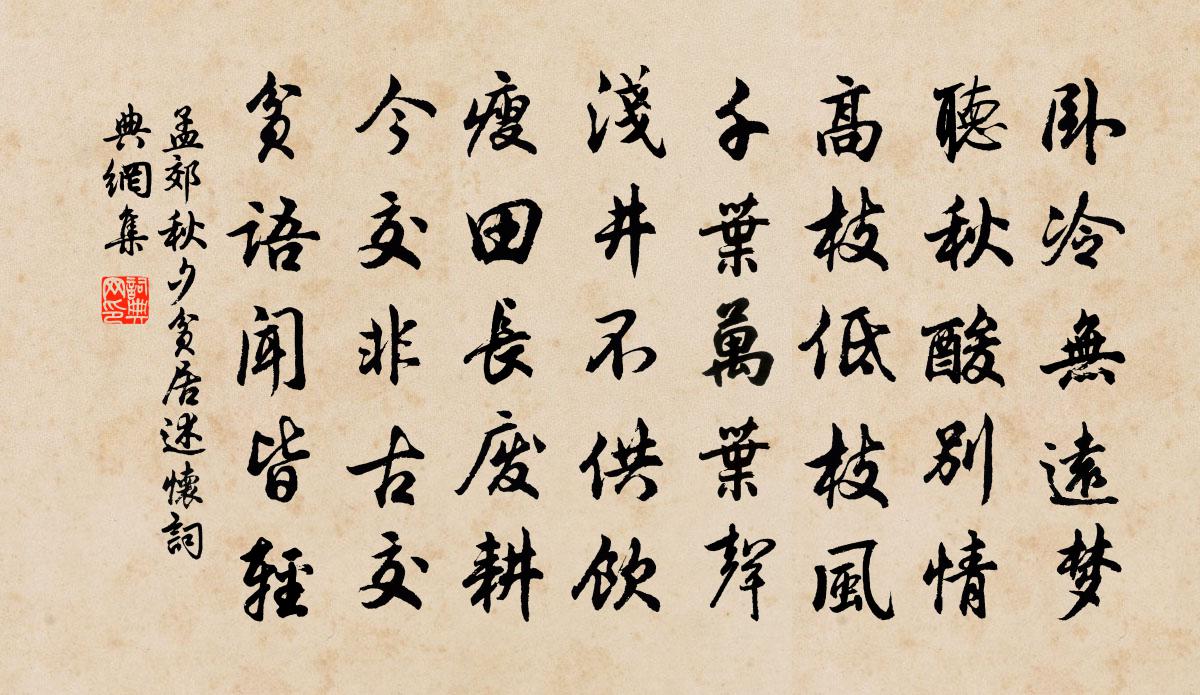 卧冷無遠梦
聽秋酸别情
高枝低枝風
千葉萬葉聲
淺井不供飲
瘦田長废耕
今交非古交
貧語聞皆輕
孟郊秋夕貧居述懷詞
典網集
詞典
网印